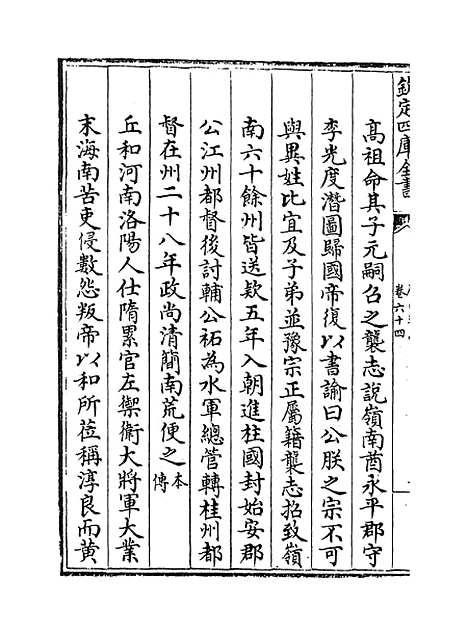 欽定四庫全書
卷六十四
高祖命其子元嗣召之襲志說嶺南酋永平郡守
李光度潛圖歸國帝復以書諭曰公朕之宗不可
與異姓比宜及子弟並豫宗正屬籍襲志招致嶺
南六十餘州皆送款五年入朝進柱國封始安郡
公江州都督後討輔公祏為水軍總管轉桂州都
督在州二十八年政尚清簡南荒便之本傳
丘和河南洛陽人仕隋累官左禦衛大將軍大業
末海南苦吏侵數怨叛帝以和所莅稱淳良而黄